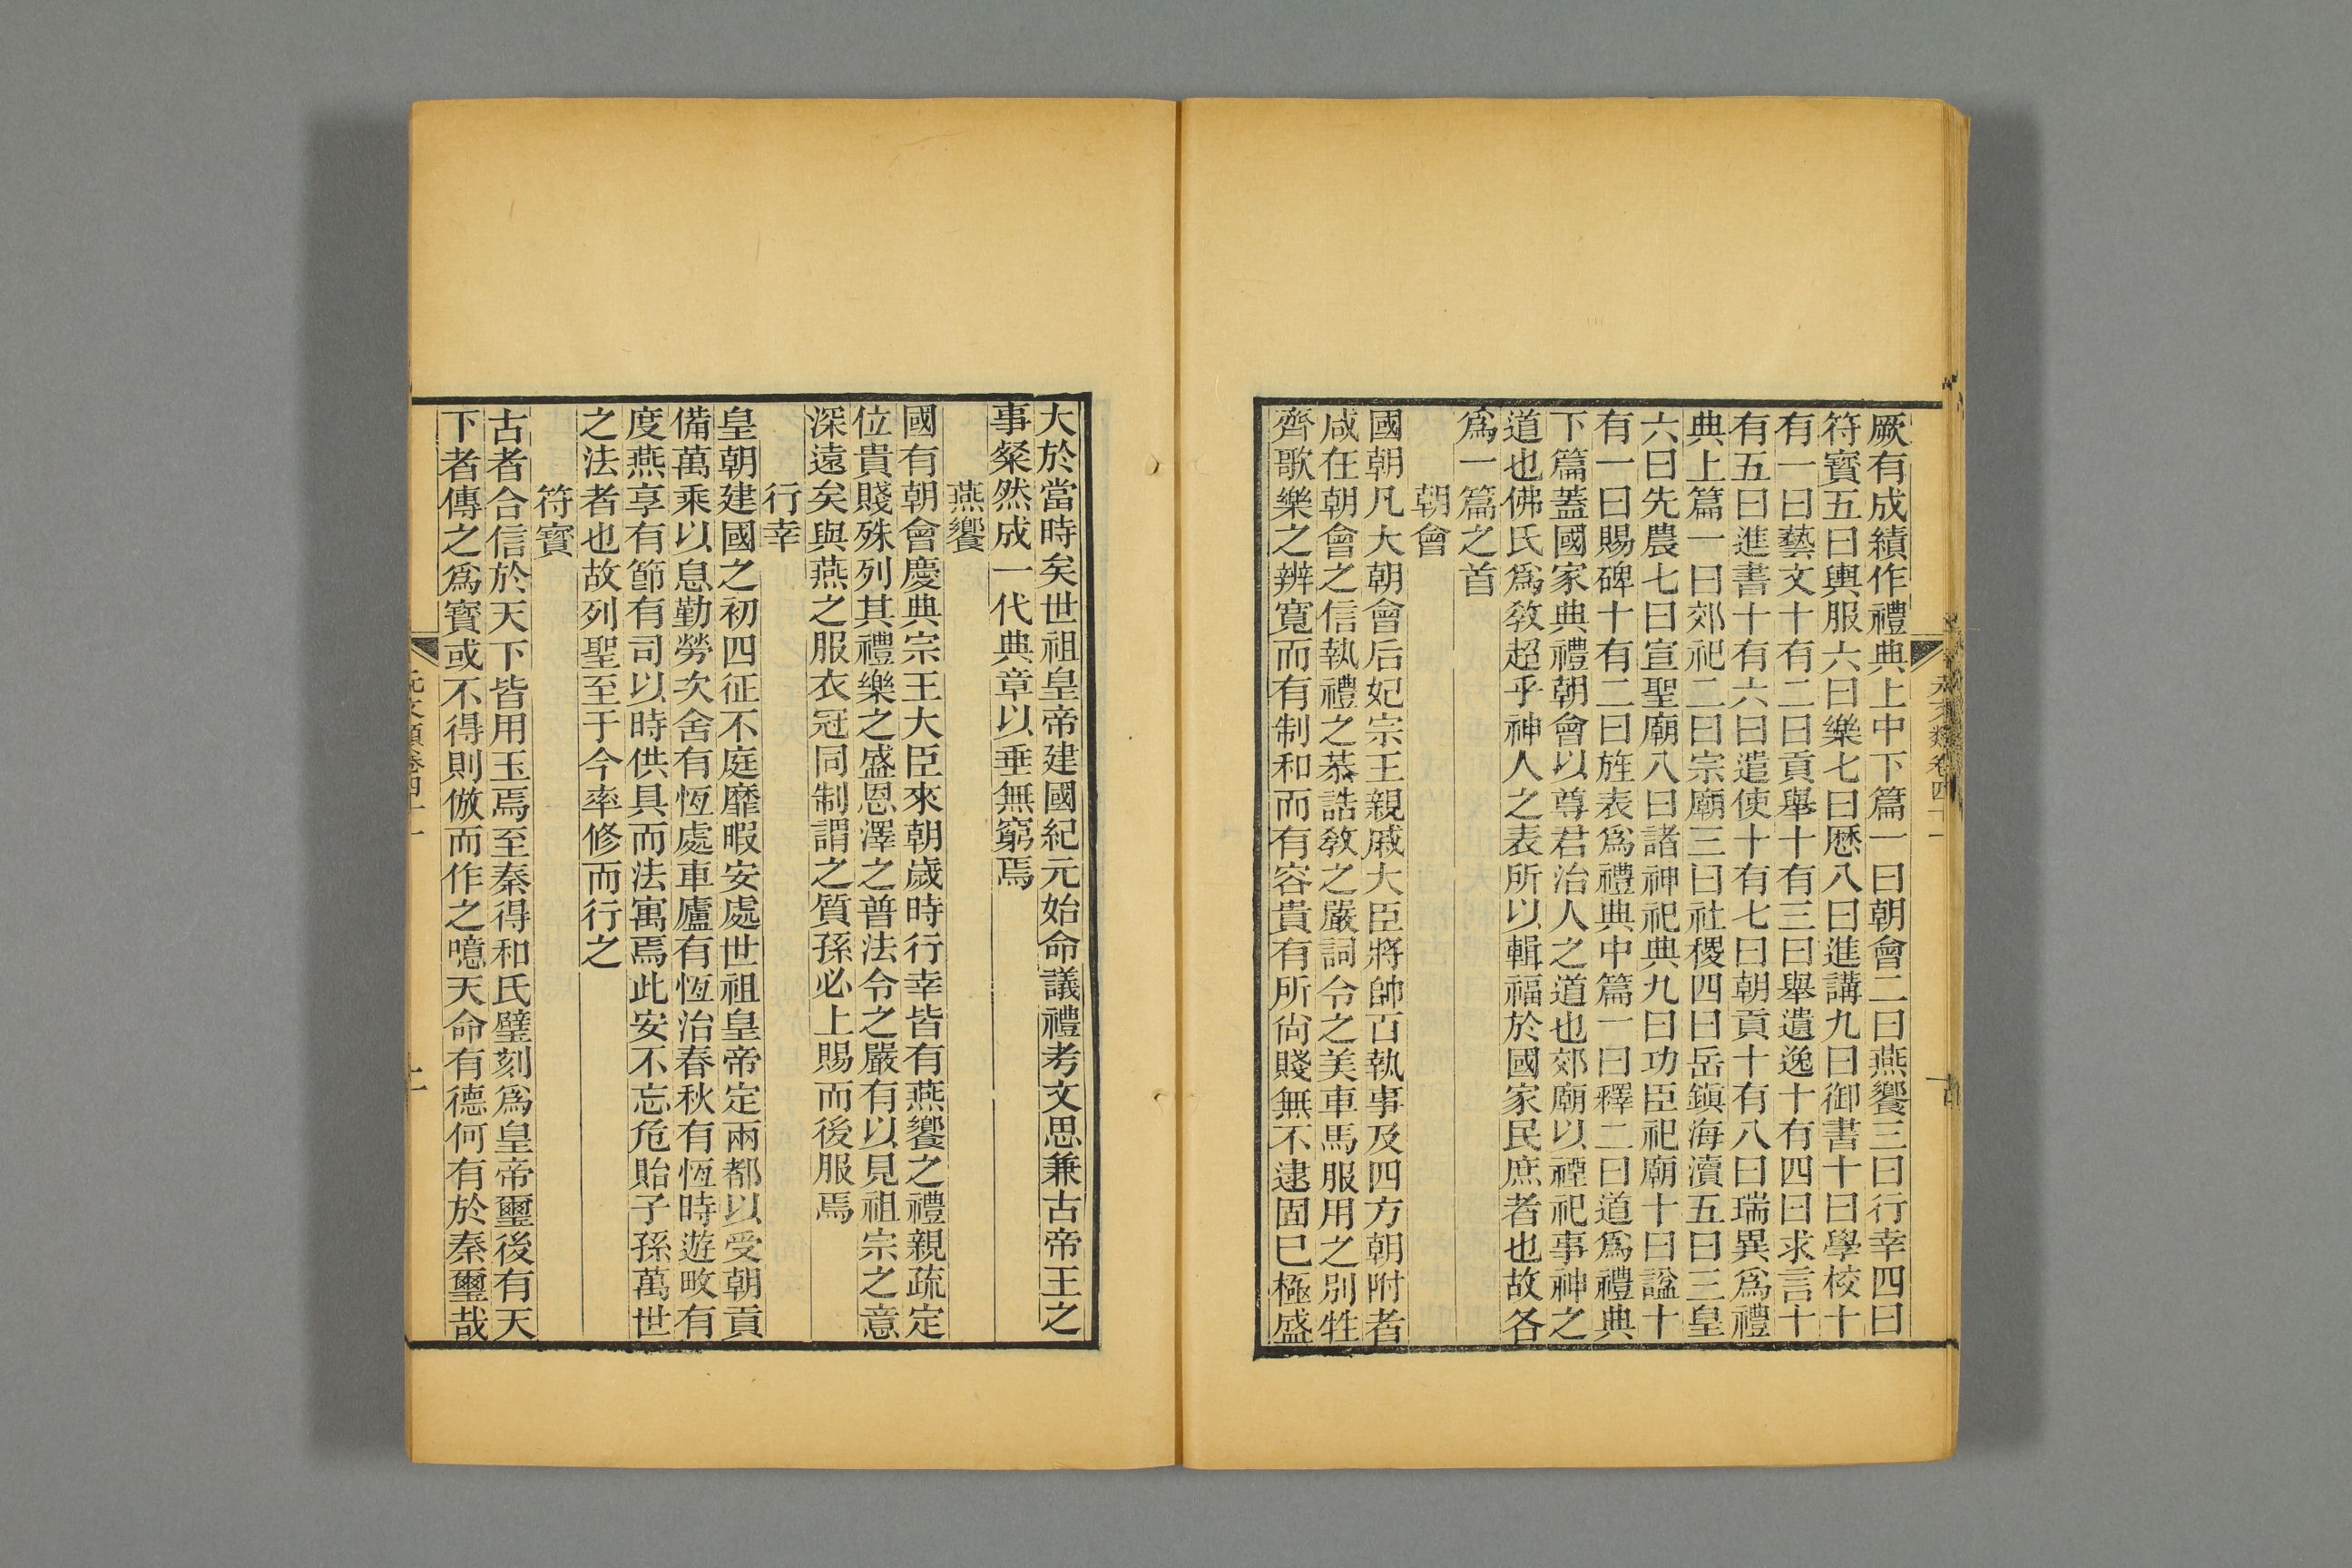 厥有成績作禮典上中下篇一曰朝會二曰燕饗三曰行幸四曰
符寶五曰輿服六曰樂七曰厯八曰進講九曰御書十曰學校十
有一曰藝文十有二曰貢舉十有三曰舉遺逸十有四曰求言十
有五曰進書十有六曰遣使十有七曰朝貢十有八曰瑞異爲禮
典上篇一曰郊祀二曰宗廟三曰社稷四曰岳鎭海瀆五曰三皇
六曰先農七曰宣聖廟八曰諸神祀典九曰功臣祀廟十曰諡十
有一曰賜碑十有二曰旌表爲禮典中篇一曰釋二曰道爲禮典
下篇蓋國家典禮朝會以尊君治人之道也郊廟以禋祀事神之
道也佛氏爲教超乎神人之表所以輯福於國家民庶者也故各
爲一篇之首
朝會
國朝凡大朝會后妃宗王親戚大臣將帥百執事及四方朝附者
咸在朝會之信執禮之恭誥敎之嚴詞令之美車馬服用之別牲
齊歌樂之辨寬而有制和而有容貴有所尙賤無不逮固已極盛
大於當時矣世祖皇帝建國紀元始命議禮考文思兼古帝王之
事粲然成一代典章以垂無窮焉
燕饗
國有朝會慶典宗王大臣來朝歲時行幸皆有燕饗之禮親疏定
位貴賤殊列其禮樂之盛恩澤之普法令之嚴有以見祖宗之意
深遠矣與燕之服衣冠同制謂之質孫必上賜而後服焉
行幸
皇朝建國之初四征不庭靡暇安處世祖皇帝定兩都以受朝貢
備萬乘以息勤勞次舍有恆處車廬有恆治春秋有恆時遊畋有
度燕享有節有司以時供具而法寓焉此安不忘危貽子孫萬世
之法者也故列聖至于今率修而行之
符寶
古者合信於天下皆用玉焉至秦得和氏璧刻爲皇帝璽後有天
下者傳之爲寶或不得則倣而作之噫天命有德何有於秦璽哉
元文類卷四十一